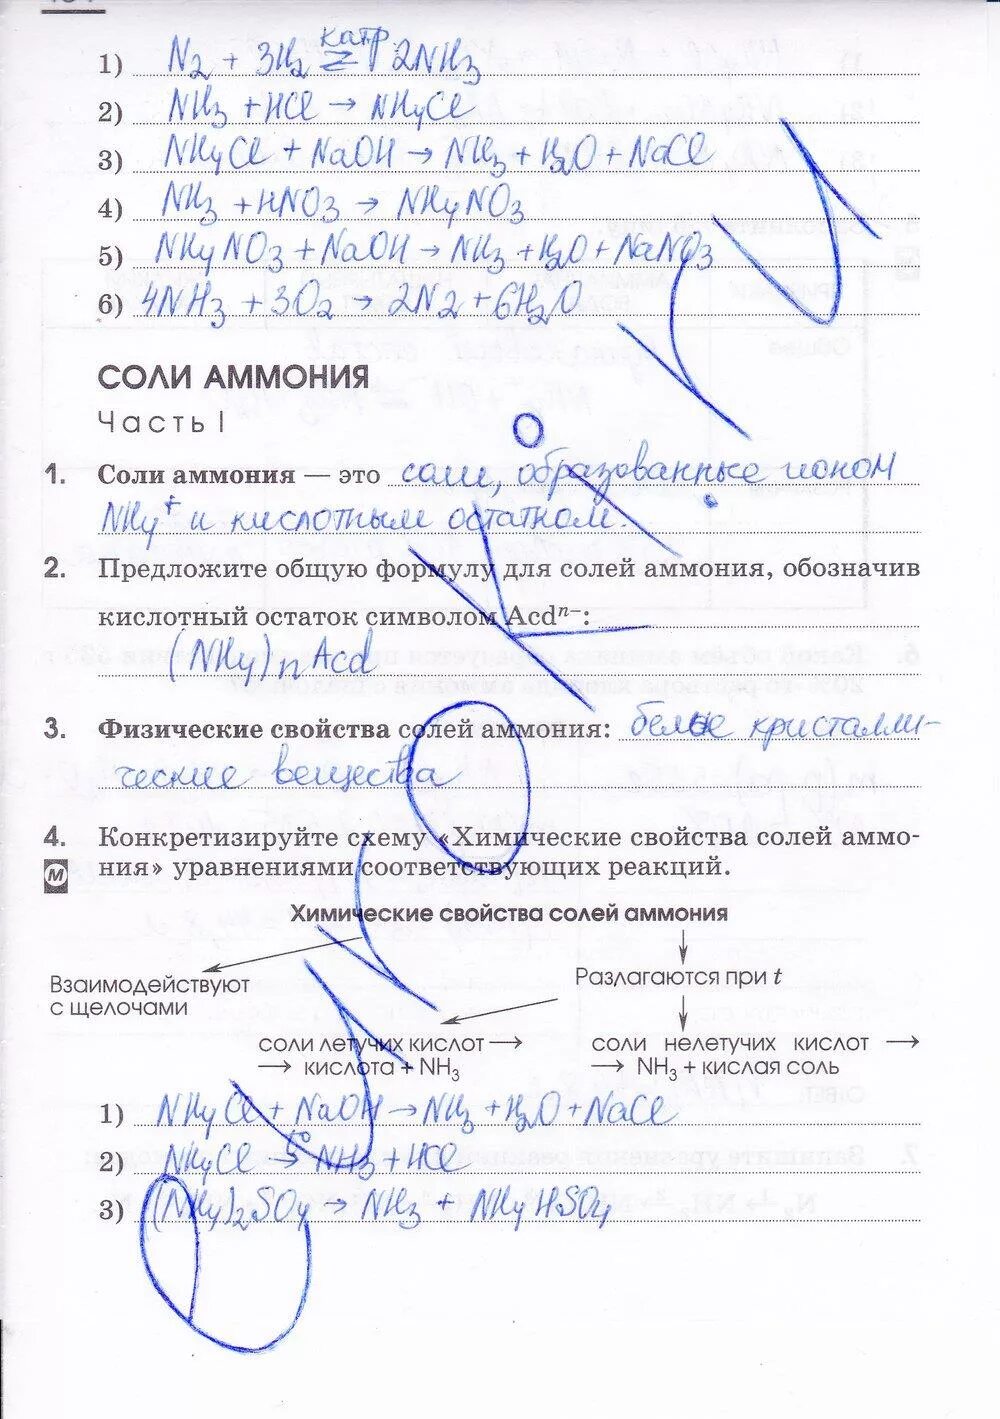 1) N₂ + 3H₂ ⇄ 2NH₃
2) NH₃ + HCl → NH₄Cl
3) NH₄Cl + NaOH → NH₃ + H₂O + NaCl
4) NH₃ + HNO₃ → NH₄NO₃
5) NH₄NO₃ + NaOH → NH₃ + H₂O + NaNO₃
6) 4NH₃ + 3O₂ → 2N₂ + 6H₂O
СОЛИ АММОНИЯ
Часть I
1. Соли аммония — это соли, образованные ионом
NH₄⁺ и кислотным остатком.
2. Предложите общую формулу для солей аммония, обозначив
кислотный остаток символом Acdⁿ⁻:
(NH₄)ₙAcd
3. Физические свойства солей аммония: белые кристалли-
ческие вещества
4. Конкретизируйте схему «Химические свойства солей аммо-
М ния» уравнениями соответствующих реакций.
Химические свойства солей аммония
Взаимодействуют
с щелочами
Разлагаются при t
соли летучих кислот →
→ кислота + NH₃
соли нелетучих кислот →
→ NH₃ + кислая соль
1) NH₄Cl + NaOH → NH₃ + H₂O + NaCl
2) NH₄Cl →t° NH₃ + HCl
3) (NH₄)₂SO₄ → NH₃ + NH₄HSO₄